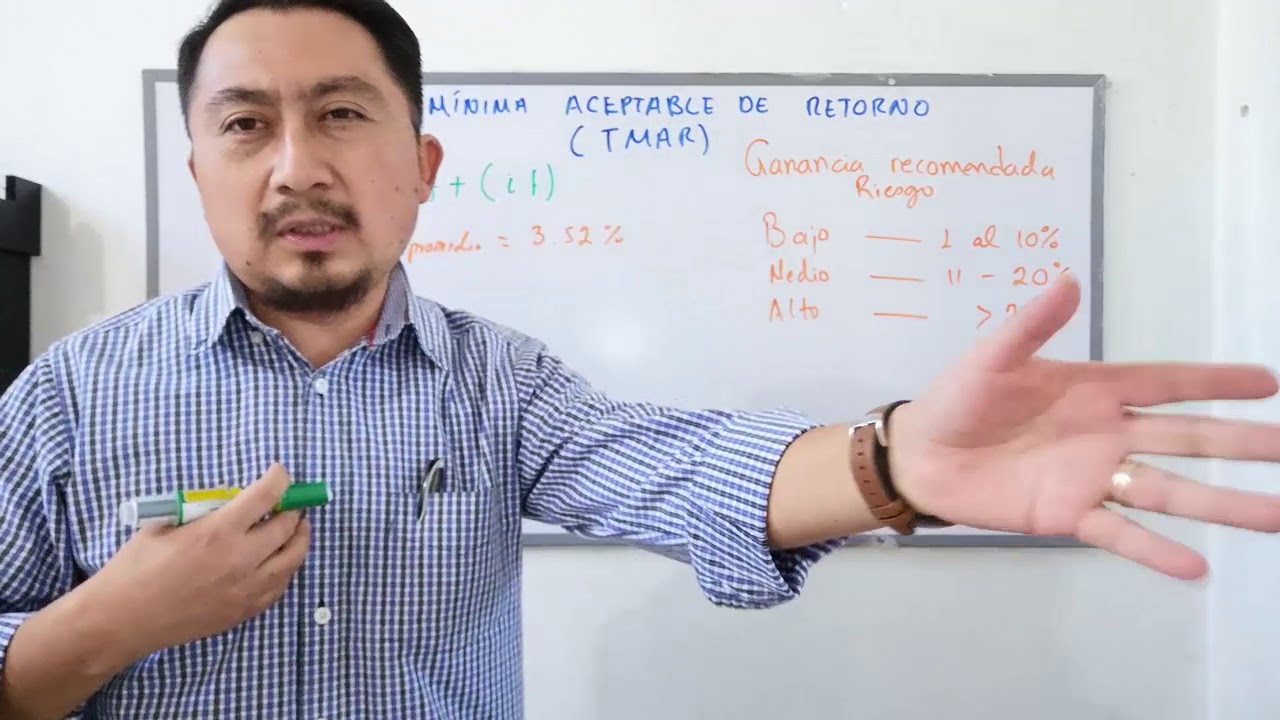 MÍNIMA ACEPTABLE DE RETORNO
(TMAR)
+ (i f)
promedio = 3.52%
Ganancia recomendada
Riesgo
Bajo — 1 al 10%
Medio — 11 - 20%
Alto — >